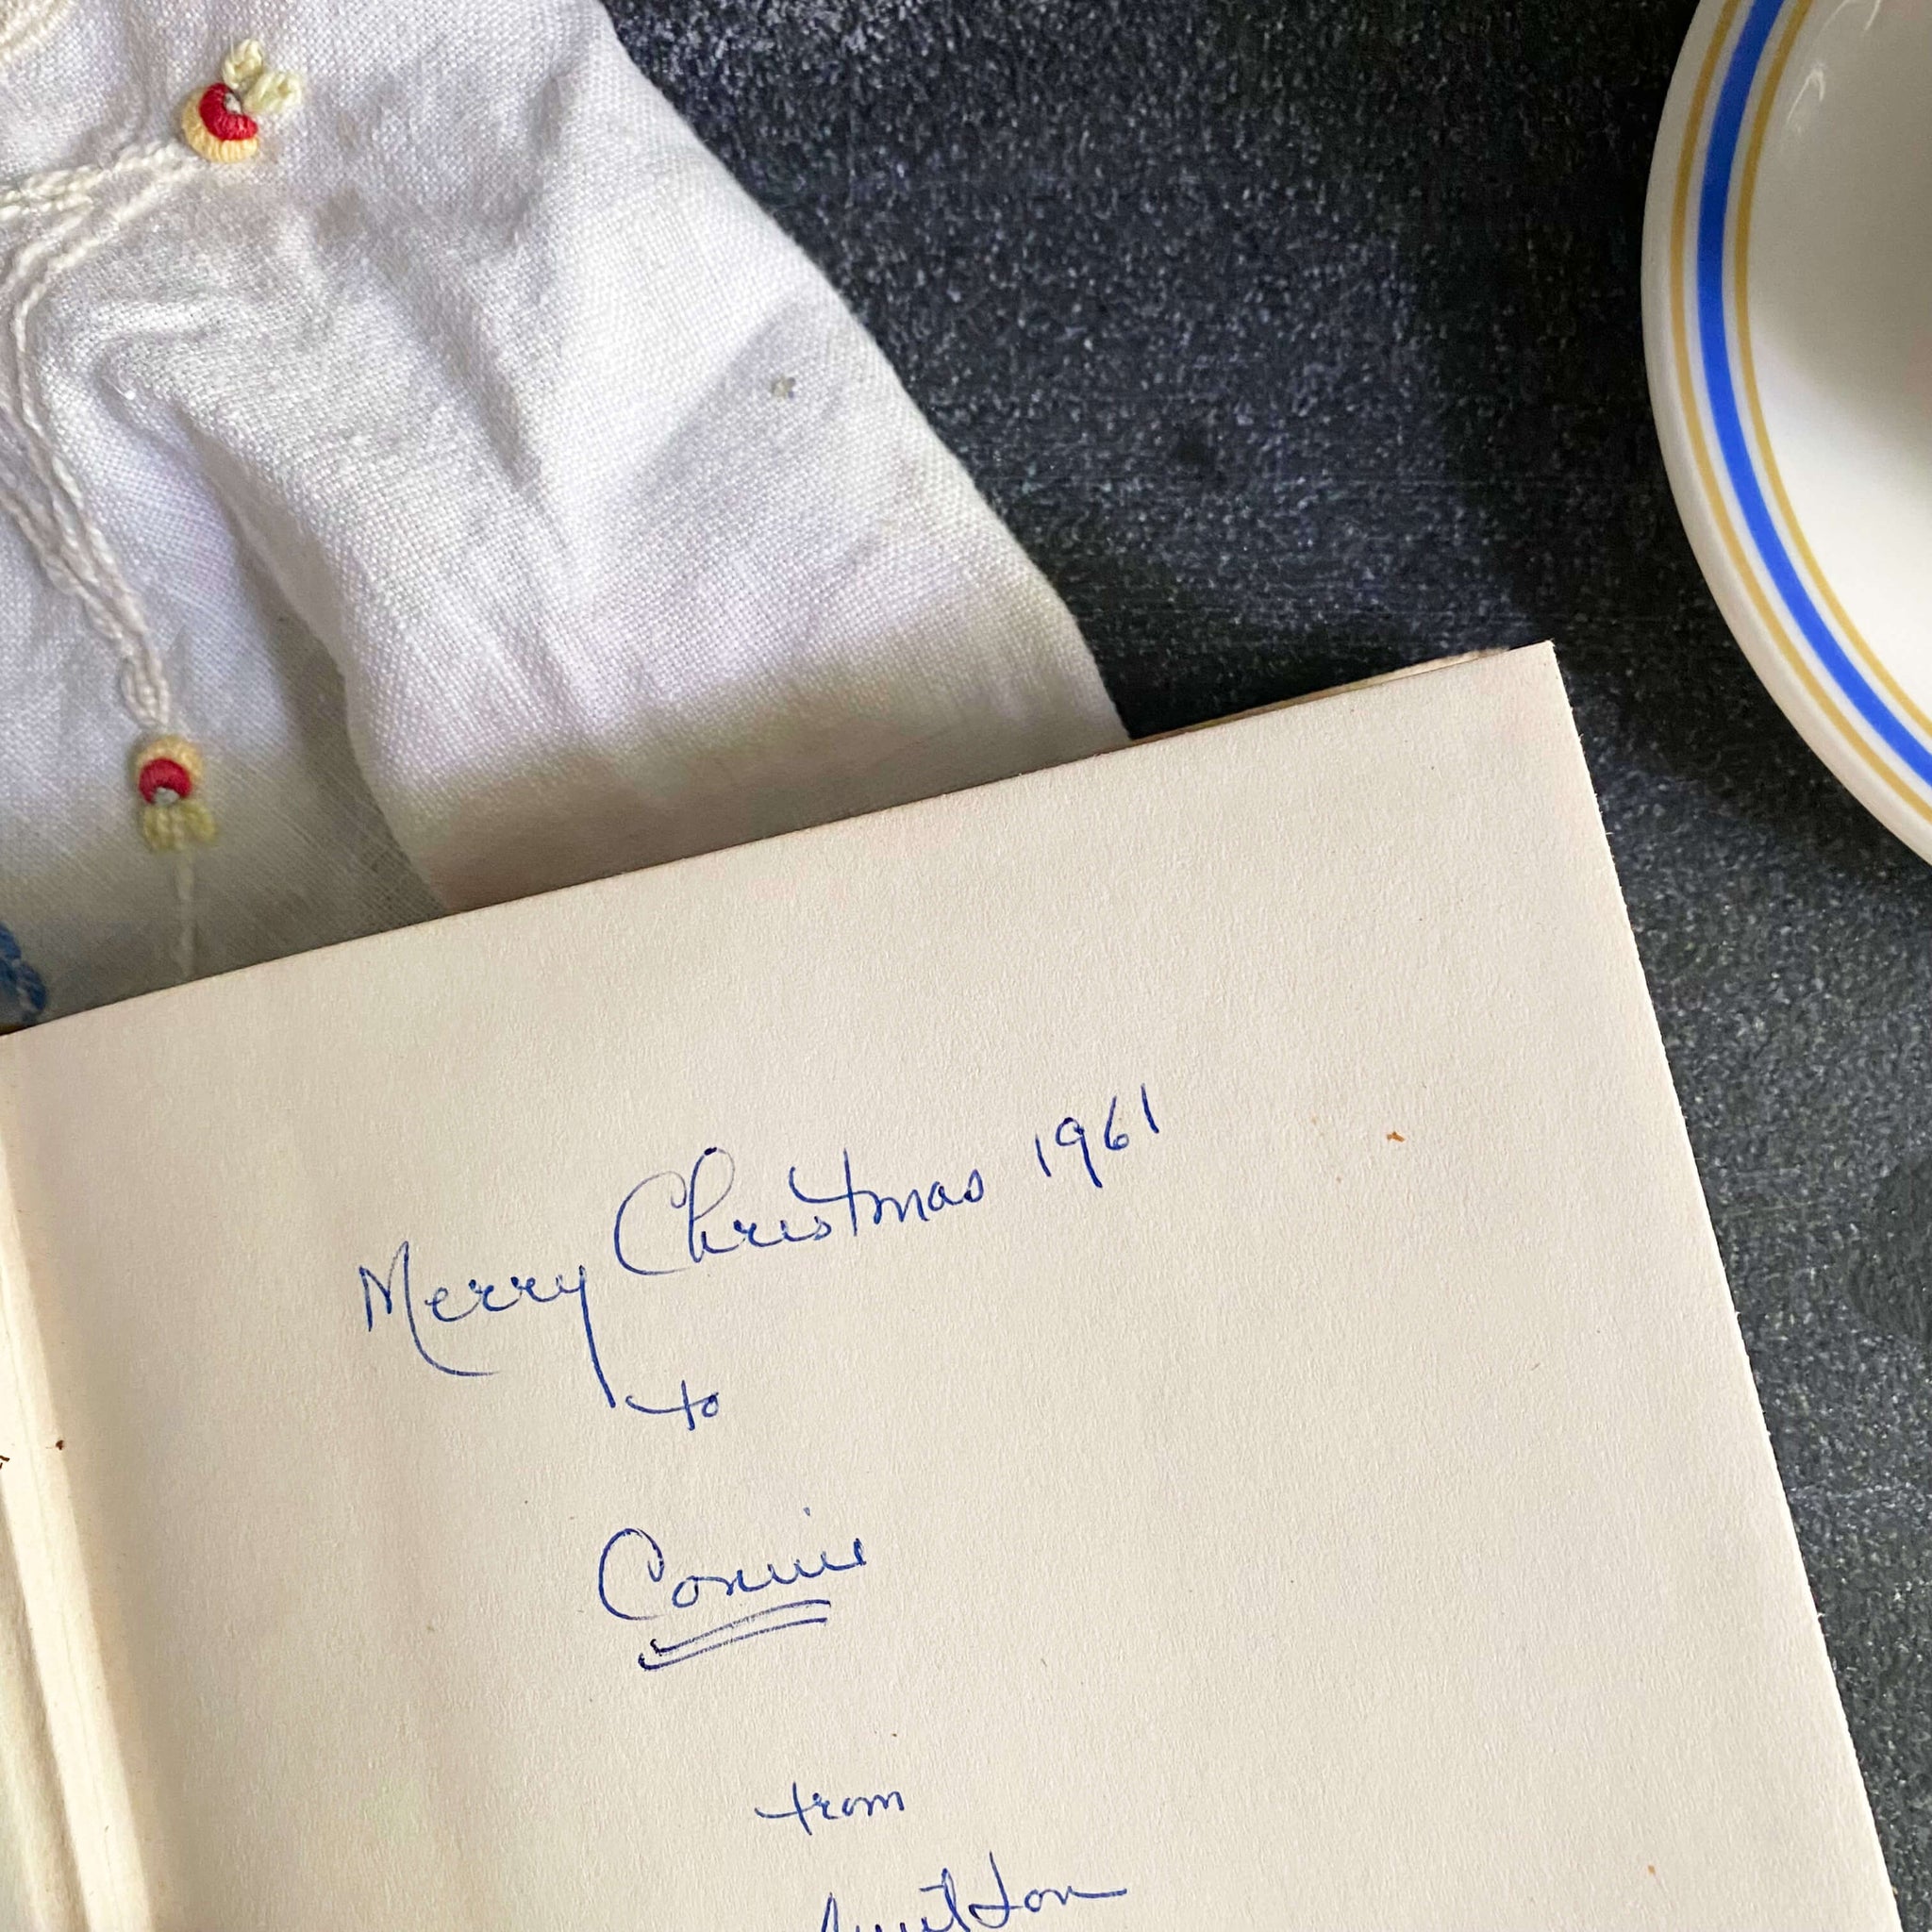 Merry Christmas 1961
to
Connie
from
Aunt